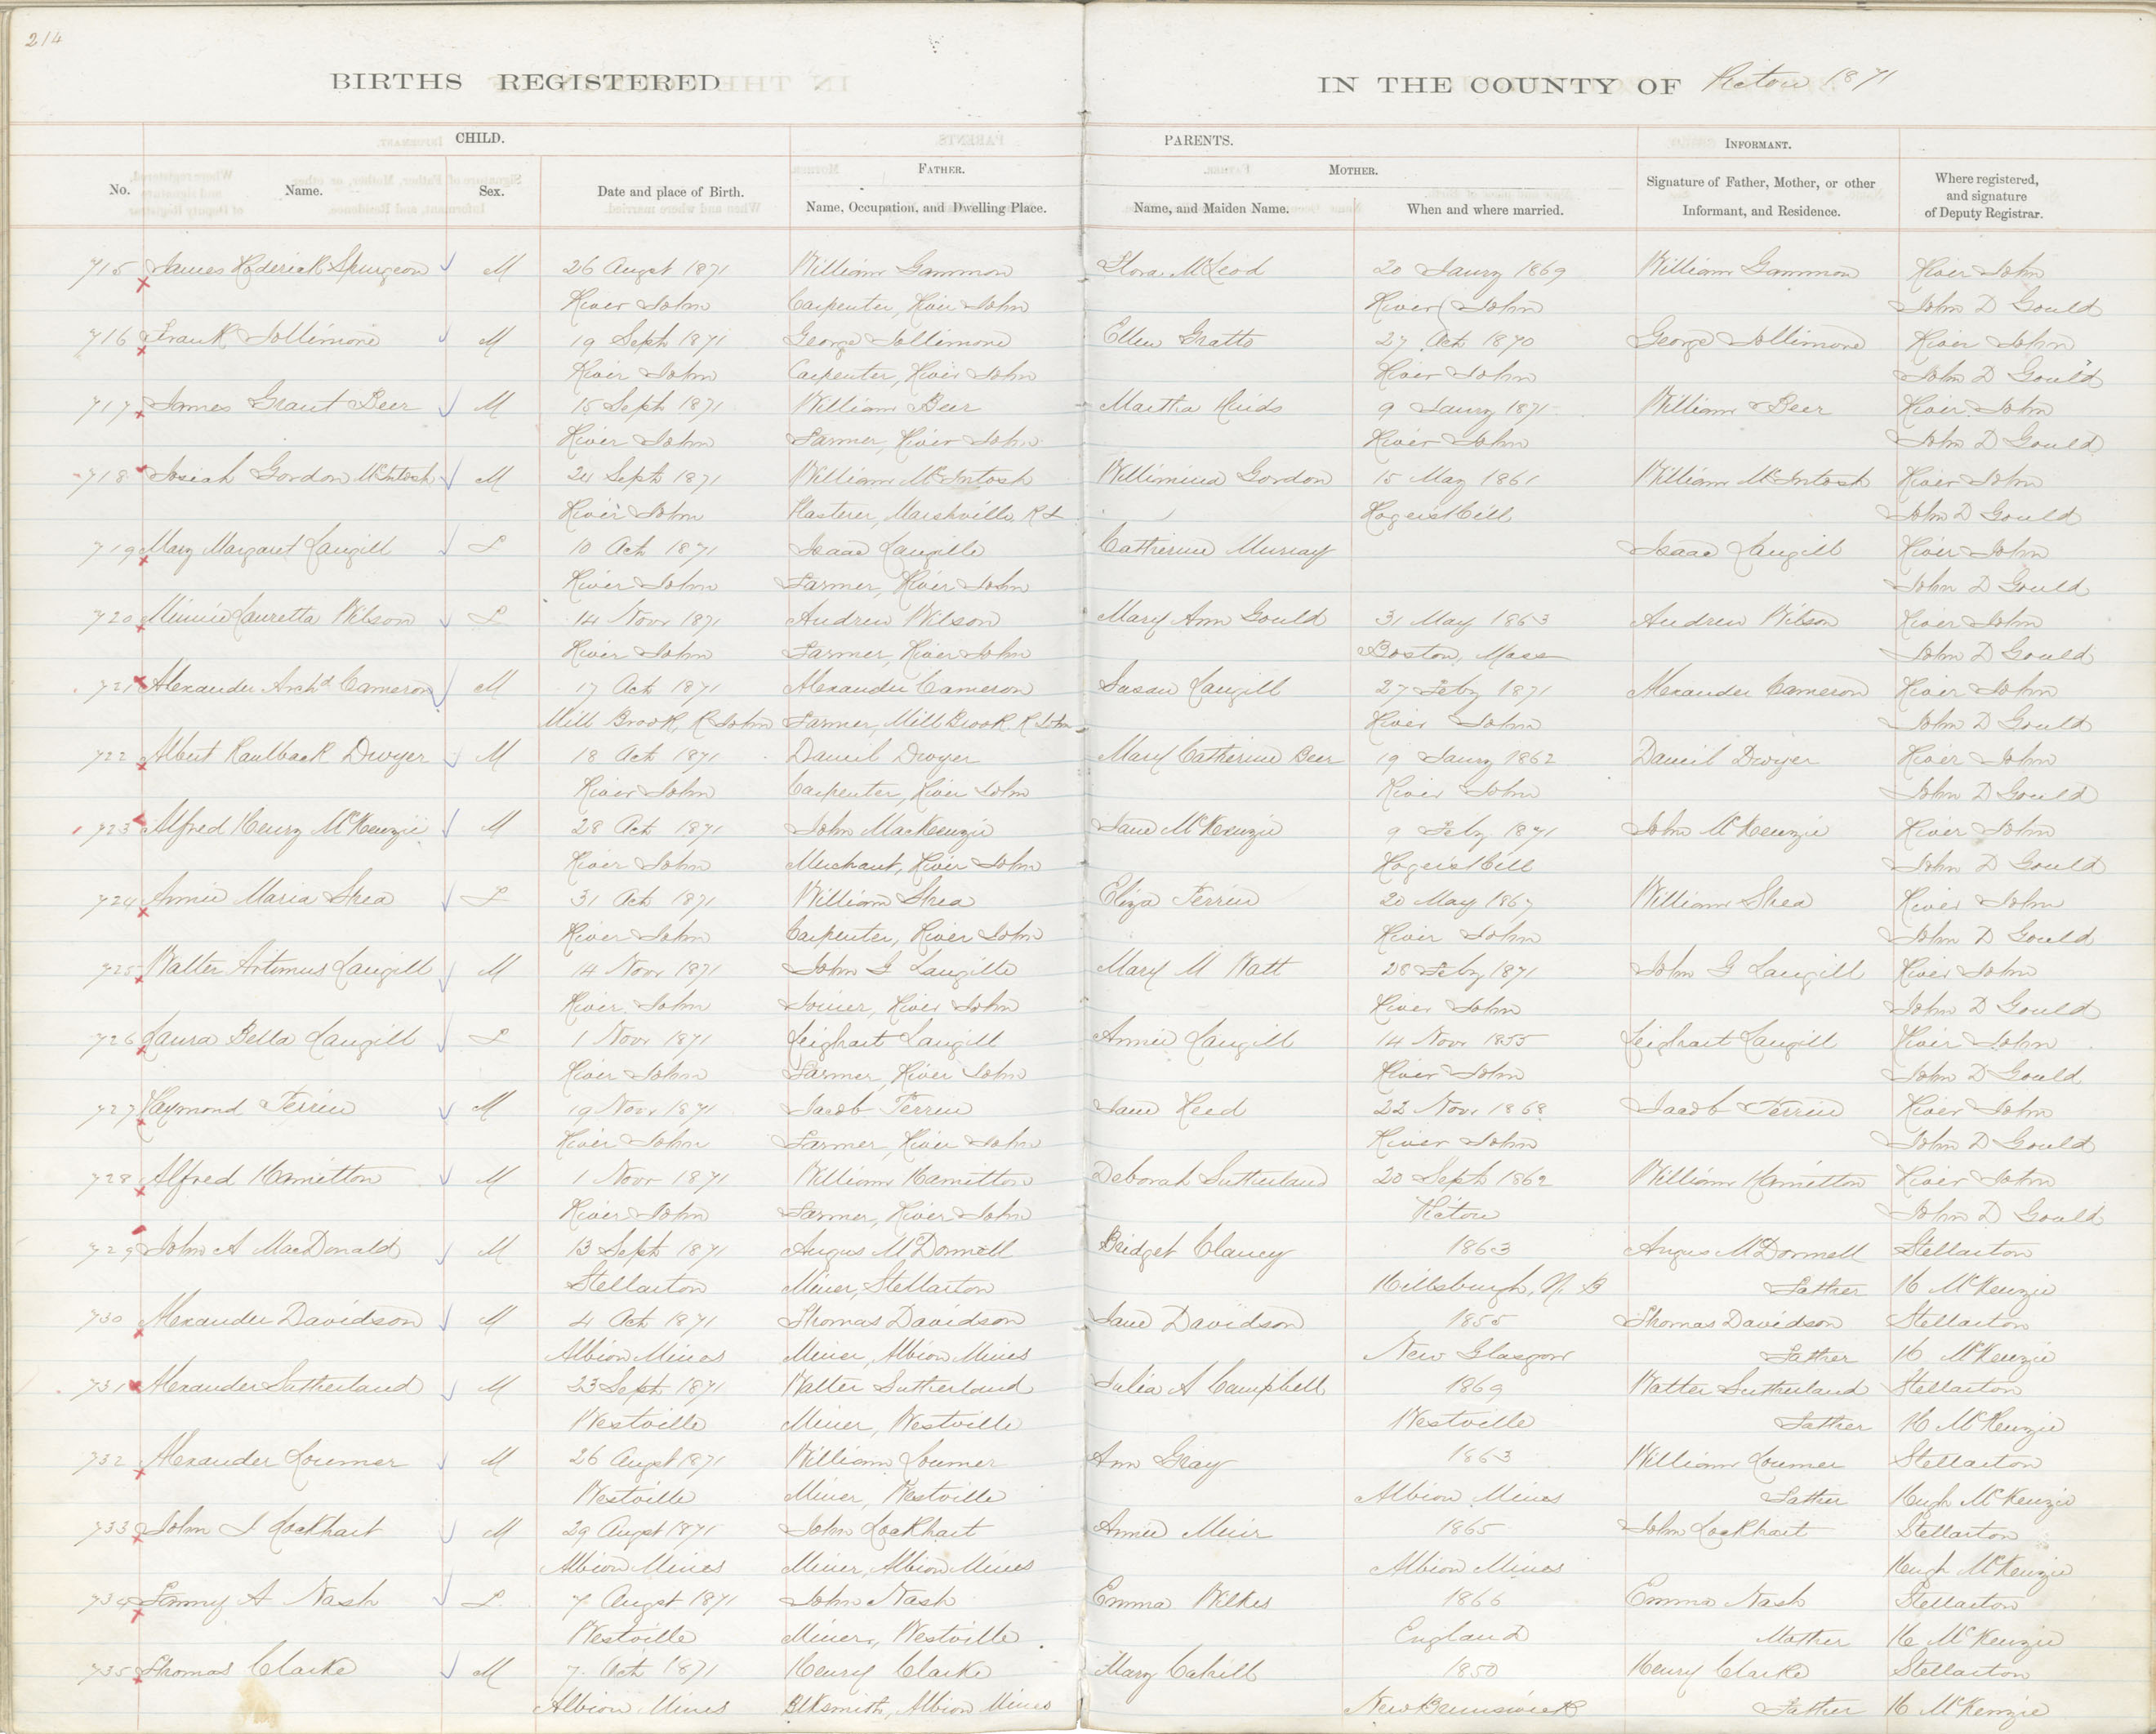 214
BIRTHS REGISTERED IN THE COUNTY OF Pictou 1871
CHILD. PARENTS. INFORMANT.
FATHER. MOTHER.
No. Name. Sex. Date and place of Birth. Name, Occupation, and Dwelling Place. Name, and Maiden Name. When and where married. Signature of Father, Mother, or other Informant, and Residence. Where registered, and signature of Deputy Registrar.
715 James Roderick Spurgeon M 26 Augst 1871 William Gammon Flora McLeod 20 Jany 1869 William Gammon River John
River John Carpenter, River John River John John D Gould
716 Frank Sollimore M 19 Sept 1871 George Sollimore Ellen Gratto 27 Oct 1870 George Sollimore River John
River John Carpenter, River John River John John D Gould
717 James Grant Beer M 15 Sept 1871 William Beer Martha Hinds 9 Jany 1871 William Beer River John
River John Farmer, River John River John John D Gould
718 Josiah Gordon McIntosh M 24 Sept 1871 William McIntosh Willimina Gordon 15 May 1861 William McIntosh River John
River John Plasterer, Marshville, R J Rogers Hill John D Gould
719 Mary Margaret Langill F 10 Oct 1871 Isaac Langille Catherine Murray Isaac Langill River John
River John Farmer, River John John D Gould
720 Minnie Lauretta Wilson F 14 Novr 1871 Andrew Wilson Mary Ann Gould 31 May 1863 Andrew Wilson River John
River John Farmer, River John Boston, Mass John D Gould
721 Alexander Archd Cameron M 17 Oct 1871 Alexander Cameron Susan Langill 27 Feby 1871 Alexander Cameron River John
Mill Brook, R John Farmer, Mill Brook. R John River John John D Gould
722 Albert Kaulback Dwyer M 18 Oct 1871 Daniel Dwyer Mary Catherine Beer 19 Jany 1862 Daniel Dwyer River John
River John Carpenter, River John River John John D Gould
723 Alfred Henry McKenzie M 28 Oct 1871 John MacKenzie Jane McKenzie 9 Feby 1871 John McKenzie River John
River John Merchant, River John Rogers Hill John D Gould
724 Annie Maria Shea F 31 Oct 1871 William Shea Eliza Perrin 20 May 1867 William Shea River John
River John Carpenter, River John River John John D Gould
725 Walter Artimus Langill M 14 Novr 1871 John G Langille Mary M Watt 28 Feby 1871 John G Langill River John
River John Joiner, River John River John John D Gould
726 Laura Bella Langill F 1 Novr 1871 Leighart Langill Annie Langill 14 Novr 1855 Leighart Langill River John
River John Farmer, River John River John John D Gould
727 Raymond Perrin M 19 Novr 1871 Jacob Perrin Jane Reed 22 Novr 1868 Jacob Perrin River John
River John Farmer, River John River John John D Gould
728 Alfred Hamilton M 1 Novr 1871 William Hamilton Deborah Sutherland 20 Sept 1862 William Hamilton River John
River John Farmer, River John Pictou John D Gould
729 John A MacDonald M 13 Sept 1871 Angus McDonnell Bridget Clancy 1863 Angus McDonnell Stellarton
Stellarton Miner, Stellarton Hillsburgh, N. B Father H McKenzie
730 Alexander Davidson M 4 Oct 1871 Thomas Davidson Jane Davidson 1855 Thomas Davidson Stellarton
Albion Mines Miner, Albion Mines New Glasgow Father H McKenzie
731 Alexander Sutherland M 23 Sept 1871 Walter Sutherland Julia A Campbell 1869 Walter Sutherland Stellarton
Westville Miner, Westville Westville Father H McKenzie
732 Alexander Lourner M 26 Augst 1871 William Lourner Ann Gray 1863 William Lourner Stellarton
Westville Miner, Westville Albion Mines Father Hugh McKenzie
733 John J Lockhart M 29 Augst 1871 John Lockhart Annie Muir 1865 John Lockhart Stellarton
Albion Mines Miner, Albion Mines Albion Mines Hugh McKenzie
734 Fanny A Nash F. 7 Augst 1871 John Nash Emma Wilkes 1866 Emma Nash Stellarton
Westville Miner, Westville England Mother H McKenzie
735 Thomas Clarke M 7 Oct 1871 Henry Clarke Mary Cahill 1850 Henry Clarke Stellarton
Albion Mines Blksmith, Albion Mines New Brunswick Father H McKenzie